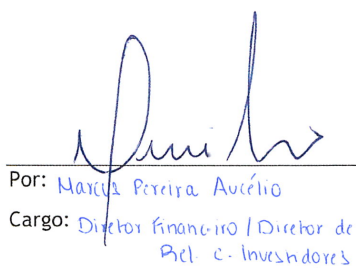 Por: Marcus Pereira Aucélio
Cargo: Diretor Financeiro / Diretor de
Rel. c. Investidores